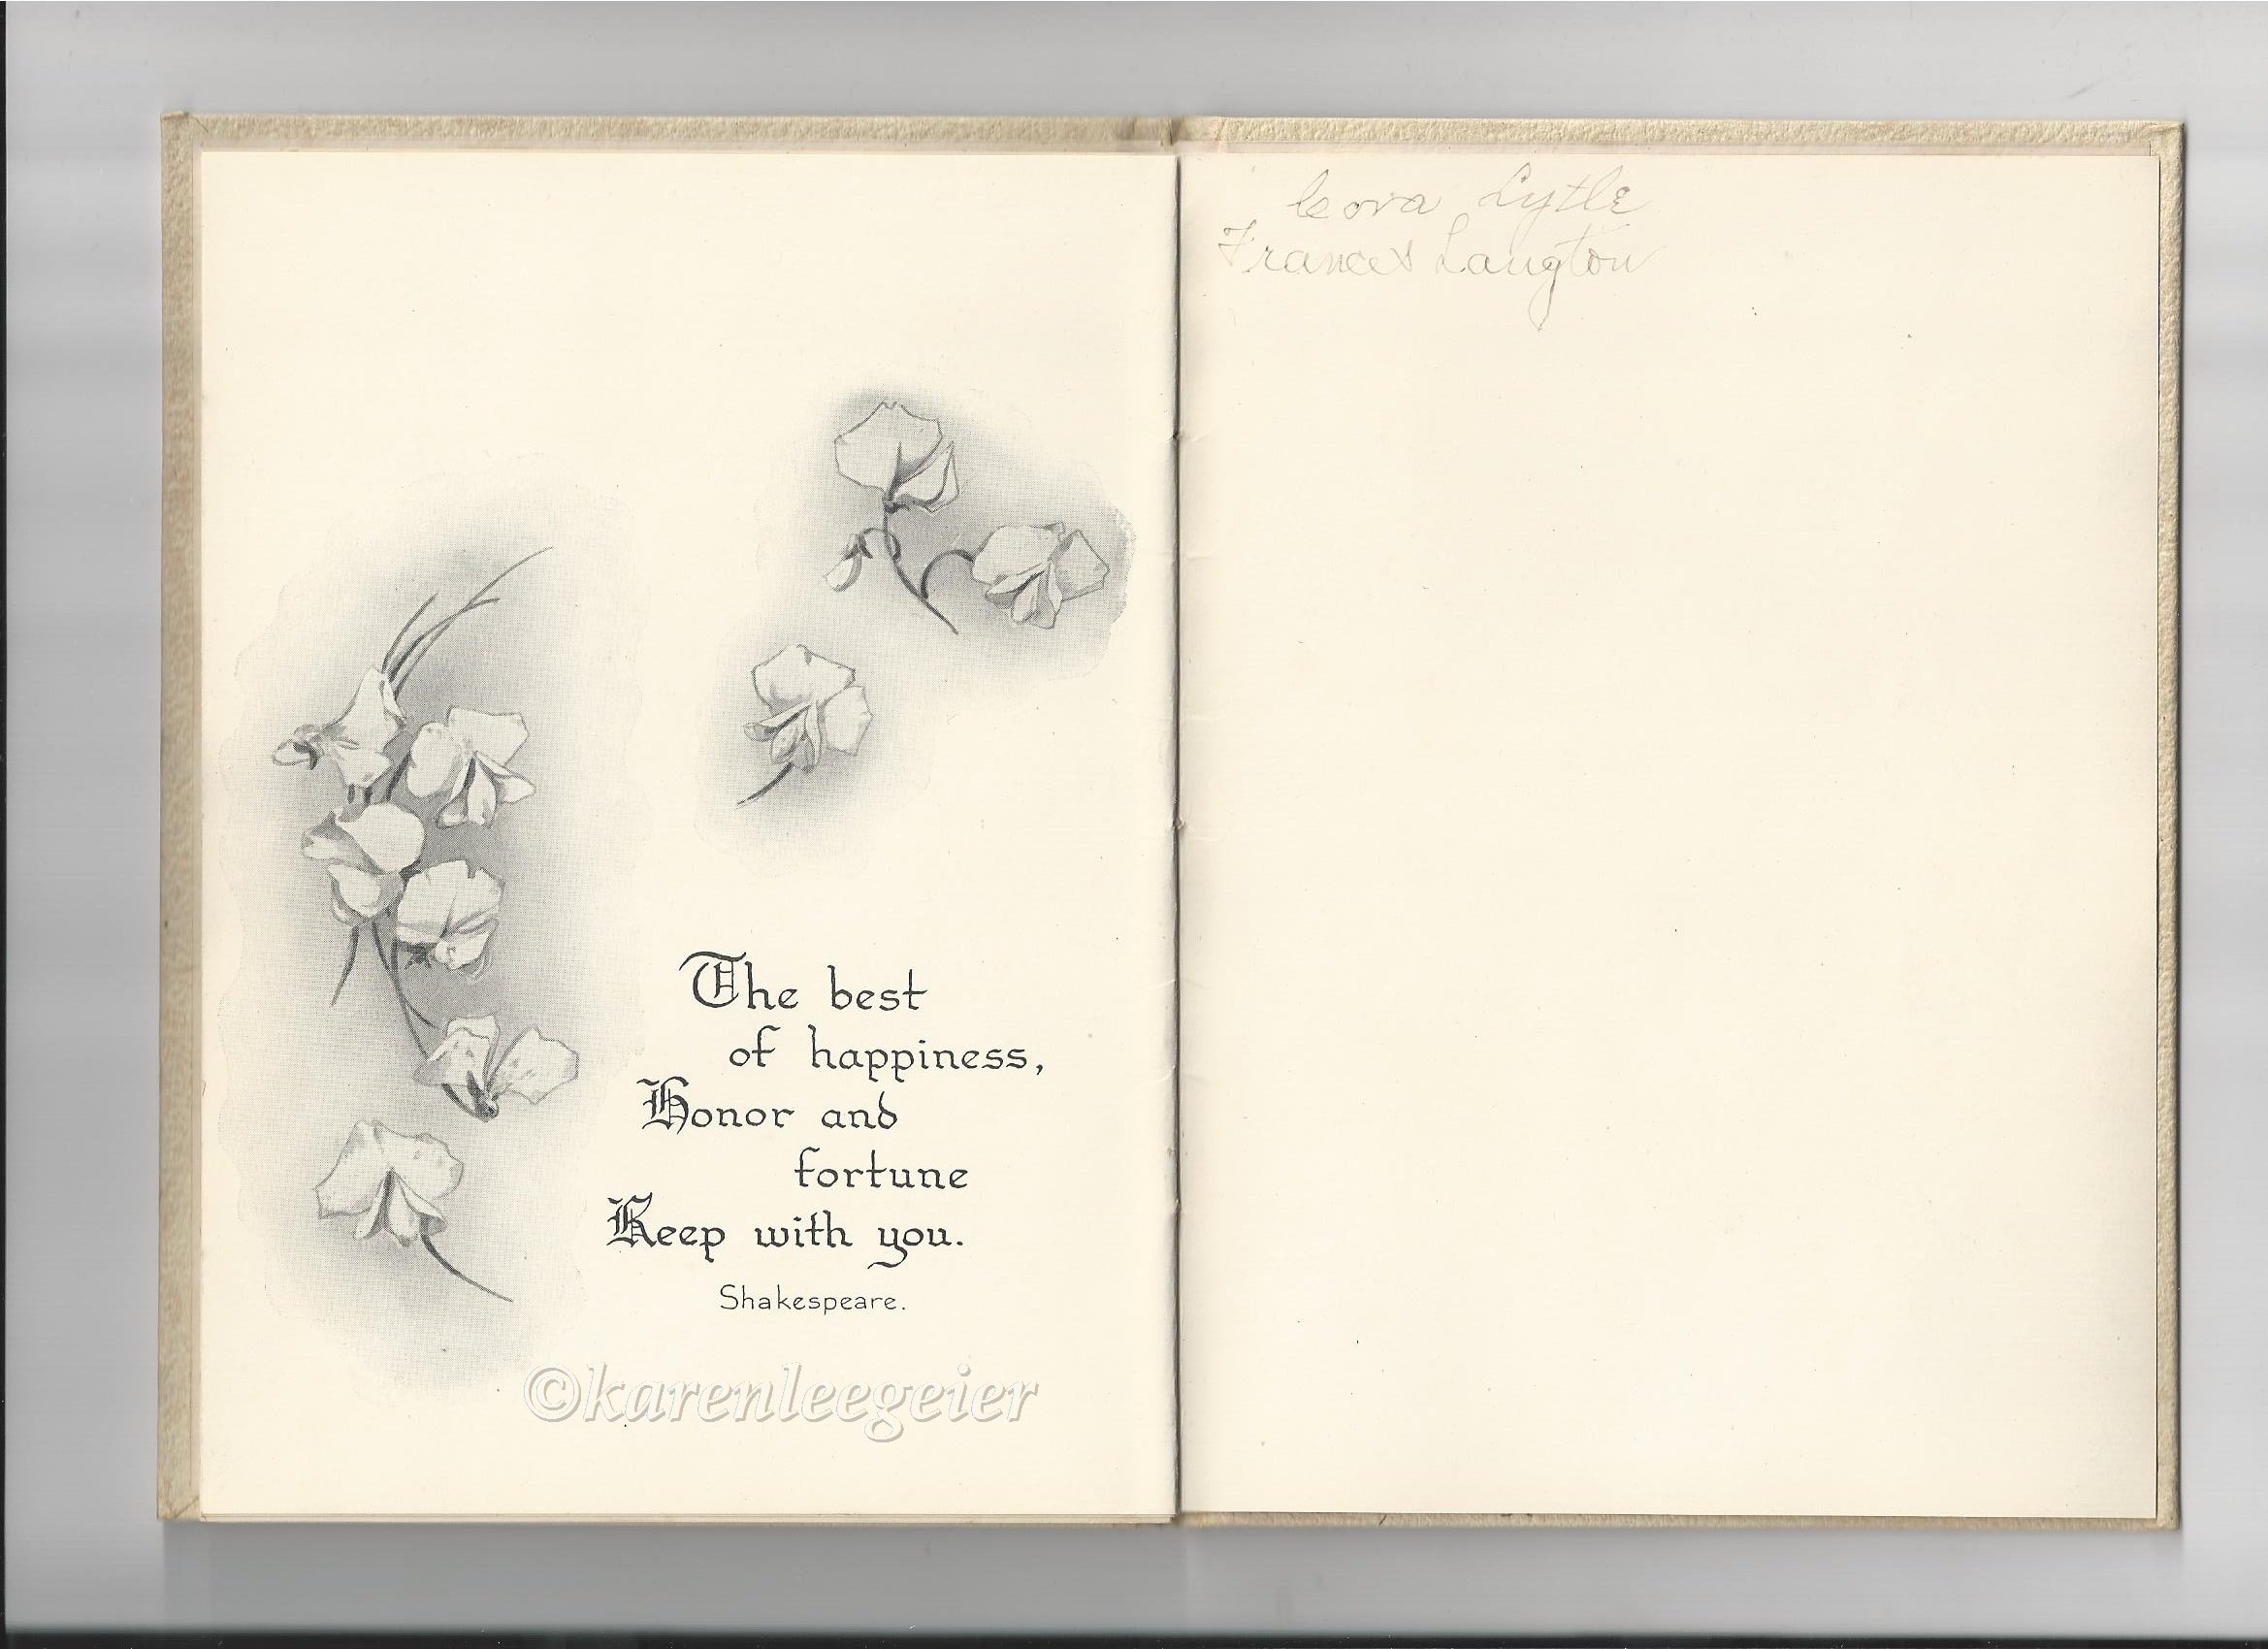 The best
of happiness,
Honor and
fortune
Keep with you.
Shakespeare.
©karenleegeier
Cora Lytle
Frances Langton